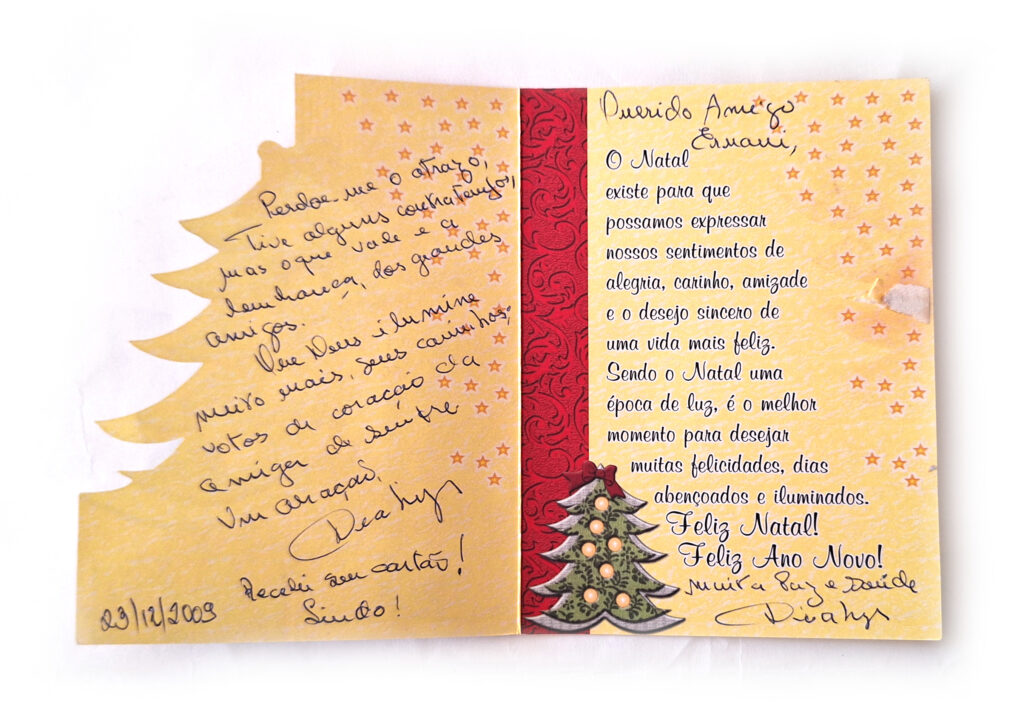 Perdoe-me o atrazo,
Tive alguns contratempos,
mas o que vale é a
lembrança, dos grandes
amigos.
Que Deus ilumine
muito mais, seus caminhos,
votos de coração da
amiga de sempre
Um abraço,
Recebi seu cartão!
Lindo!
23/12/2009
Querido Amigo
Ernani,
O Natal
existe para que
possamos expressar
nossos sentimentos de
alegria, carinho, amizade
e o desejo sincero de
uma vida mais feliz.
Sendo o Natal uma
época de luz, é o melhor
momento para desejar
muitas felicidades, dias
abençoados e iluminados.
Feliz Natal!
Feliz Ano Novo!
Muita Paz e Saúde